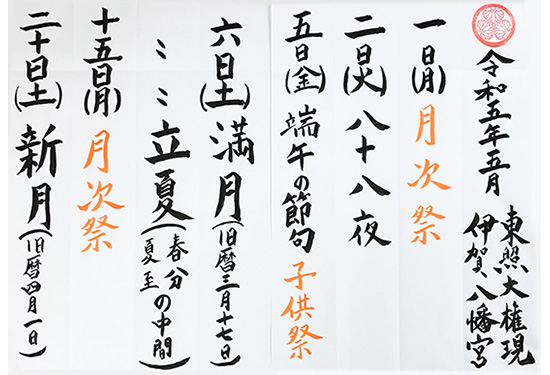 令和五年五月
東照大権現
伊賀八幡宮
一日(月)月次祭
二日(火)八十八夜
五日(金)端午の節句 子供祭
六日(土)満月(旧暦三月十七日)
〃〃立夏(春分夏至の中間)
十五日(月)月次祭
二十日(土)新月(旧暦四月一日)